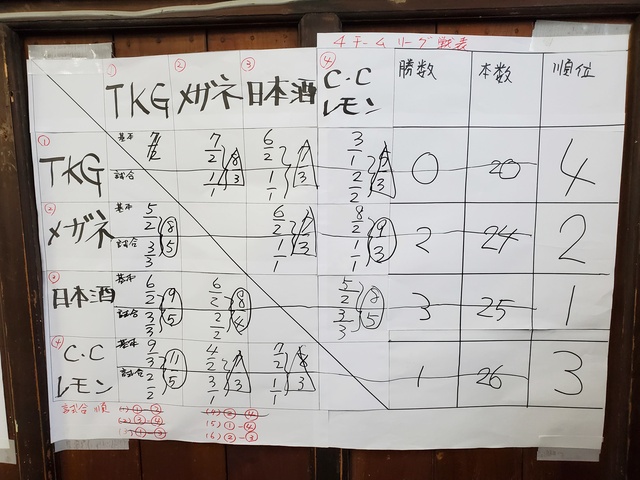 4チームリーグ戦表
① ② ③ ④
TKG メガネ 日本酒 C.C レモン 勝数 本数 順位
① TKG 基本 7/2 6/2 3/1
試合 1/1 1/1 2/2 0 20 4
② メガネ 基本 5/2 ⑧ 6/2 8/2 ⑨
試合 3/3 ⑤ 1/1 1/1 ③ 2 24 2
日本酒 基本 6/2 ⑨ 6/2 ⑧ 5/2 ⑧
試合 3/3 ⑤ 2/2 ④ 3/3 ⑤ 3 25 1
④ C.C レモン 基本 9/3 ⑪ 4/2 7/2
試合 2/2 ⑤ 3/1 1/1 1 26 3
試合順 (1) ①-② (4) ②-④
(2) ③-④ (5) ①-④
①-③ (6) ②-③